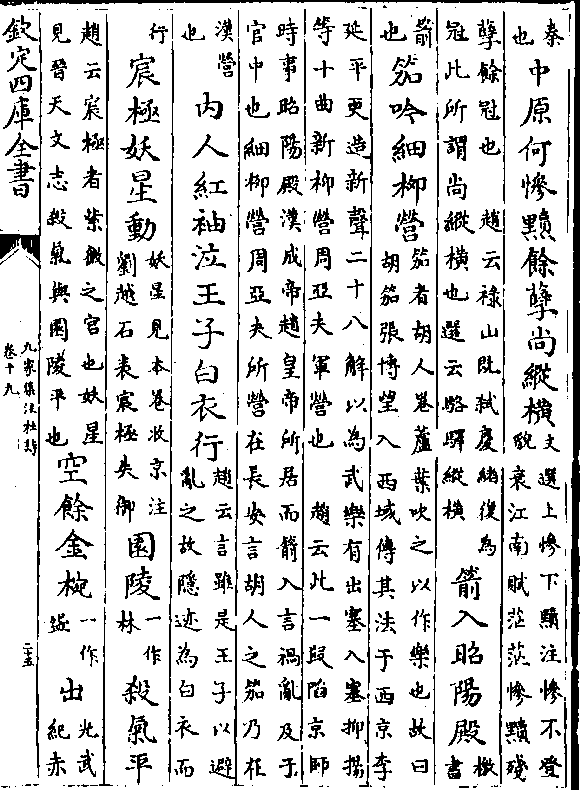 秦
也
中原何慘黷餘孽尚縱横
文選上慘下黷注慘不登
貌哀江南賦茫茫慘黷殘
孽餘冠也　趙云祿山既弑慶緒復為
冠此所謂尚縱横也選云駱驛縱横
箭入昭陽殿
檄
書
箭
也
笳吟細柳營
笳者胡人卷蘆葉吹之以作樂也故曰
胡笳張博望入西域傳其法于西京李
延平更造新聲二十八解以為武樂有出塞入塞抑揚
等十曲新柳營周亞夫軍營也　趙云此一段陷京師
時事昭陽殿漢成帝趙皇帝所居而箭入言禍亂及于
官中也細柳營周亞夫所營在長安言胡人之笳乃在
漢營
也
内人紅袖泣王子白衣行
趙云言雖是王子以避
亂之故隱迹為白衣而
行
宸極妖星動
妖星見本卷收京注
劉越石表宸極失御
園陵
一作
林
殺氣平
趙云宸極者紫微之宫也妖星
見晉天文志殺氣與園陵平也
空餘金椀
一作
盌
出
光武
紀赤
欽定四庫全書
九家集注杜詩
卷十九
二十五